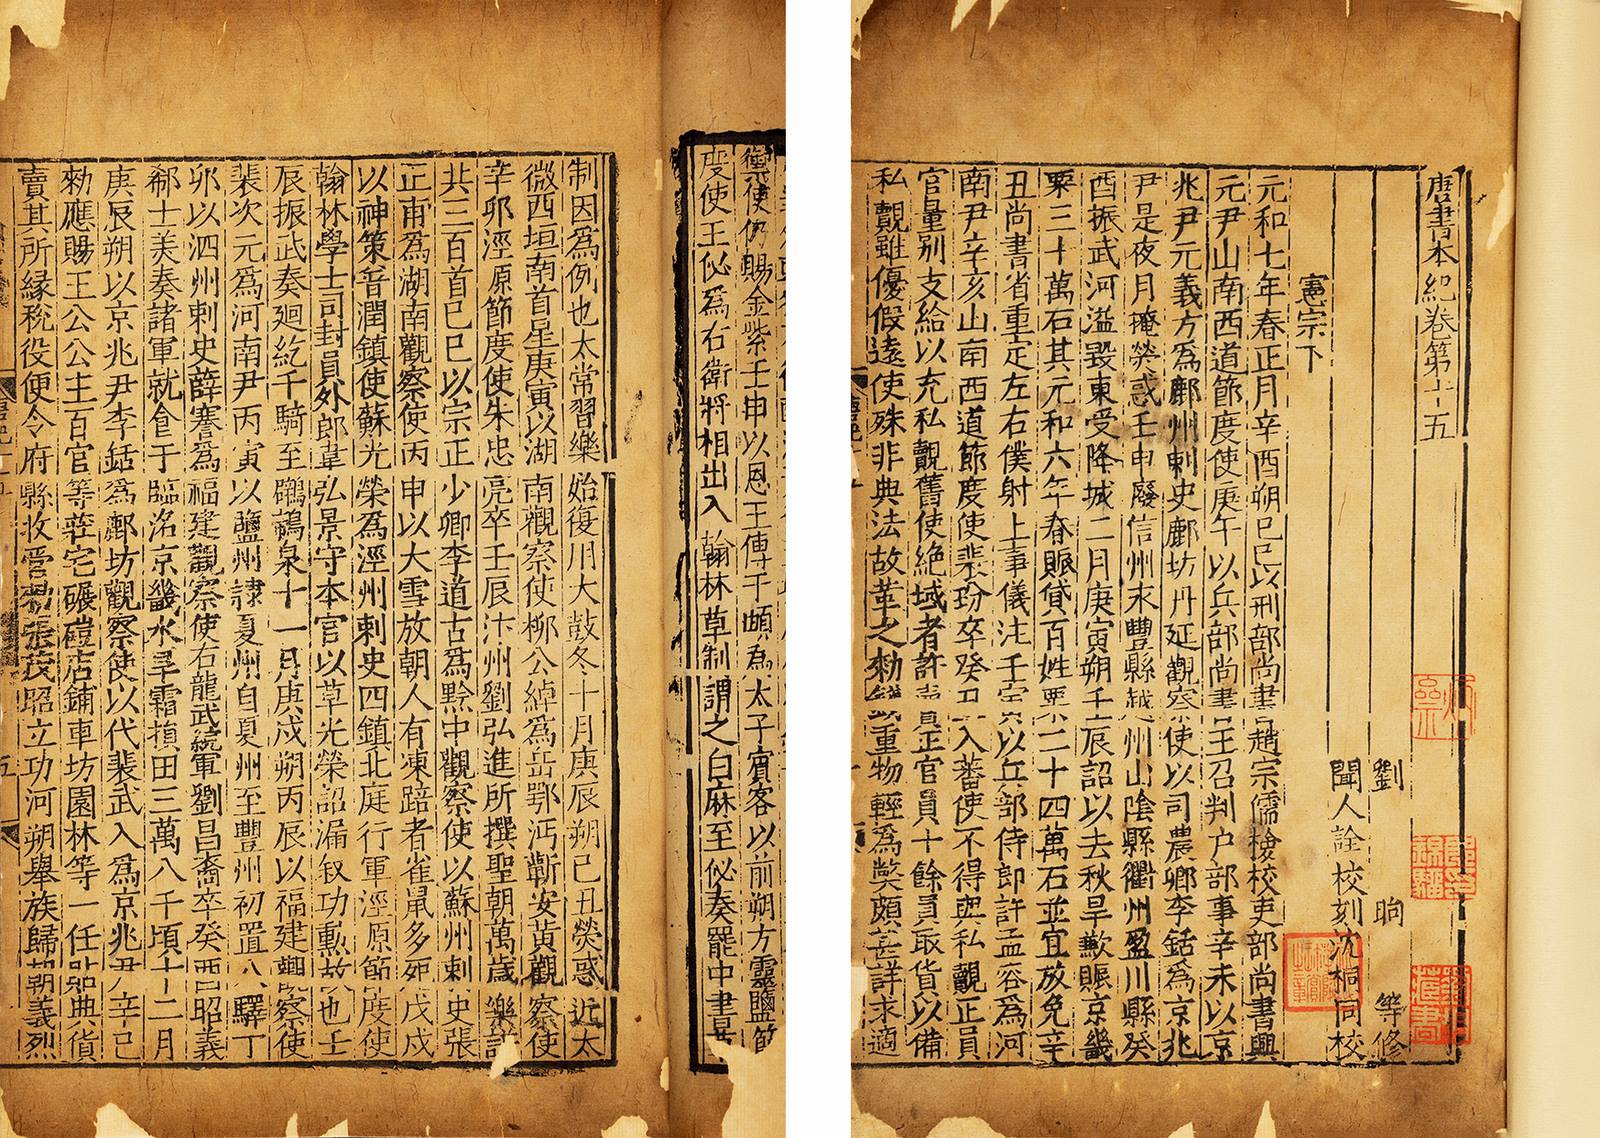 唐書本紀卷第十五
劉昫等修
聞人詮校刻沈桐同校
憲宗下
元和七年春正月辛酉朔己巳以刑部尚書趙宗儒檢校吏部尚書興
元尹山南西道節度使庚午以兵部尚書王召判户部事辛未以京
兆尹元義方爲鄜州刺史鄜坊丹延觀察使以司農卿李銛爲京兆
尹是夜月掩熒惑壬申廢信州永豐縣越州山陰縣衢州盈川縣癸
酉振武河溢毀東受降城二月庚寅朔壬辰詔以去秋旱歉賑京畿
粟三十萬石其元和六年春賑貸百姓粟二十四萬石並宜放免辛
丑尚書省重定左右僕射上事儀注壬寅以兵部侍郎許孟容爲河
南尹辛亥山南西道節度使裴玢卒癸丑入蕃使不得與私覿正員
官量别支給以充私覿舊使絶域者許賣正官員十餘員取貨以備
私覿雖優假遠使殊非典法故革之勑錢重物輕爲獘頗甚詳求適
禦使仍賜金紫壬申以恩王傅于頔爲太子賓客以前朔方靈鹽節
度使王佖爲右衛將相出入翰林草制謂之白麻至佖奏罷中書草
制因爲例也太常習樂始復用大鼓冬十月庚辰朔己丑熒惑近太
微西垣南首星庚寅以湖南觀察使柳公綽爲岳鄂沔蘄安黃觀察使
辛卯涇原節度使朱忠亮卒壬辰汴州劉弘進所撰聖朝萬歲樂譜
共三百首己巳以宗正少卿李道古爲黔中觀察使以蘇州刺史張
正甫爲湖南觀察使丙申以大雪放朝人有凍踣者雀鼠多死戊戌
以神策普潤鎮使蘇光榮爲涇州刺史四鎮北庭行軍涇原節度使
翰林學士司封員外郎韋弘景守本官以草光榮詔漏叙功勳故也壬
辰振武奏廻紇千騎至鸊鵜泉十一月庚戌朔丙辰以福建觀察使
裴次元爲河南尹丙寅以鹽州隷夏州自夏州至豐州初置八驛丁
卯以泗州刺史薛謇爲福建觀察使右龍武統軍劉昌裔卒癸酉昭義
郗士美奏諸軍就食于臨洺京畿水旱霜損田三萬八千頃十二月
庚辰朔以京兆尹李銛爲鄜坊觀察使以代裴武入爲京兆尹辛巳
勑應賜王公公主百官等莊宅碾磑店鋪車坊園林等一任貼典貨
賣其所緣稅役便令府縣收管勑張茂昭立功河朔舉族歸朝義烈